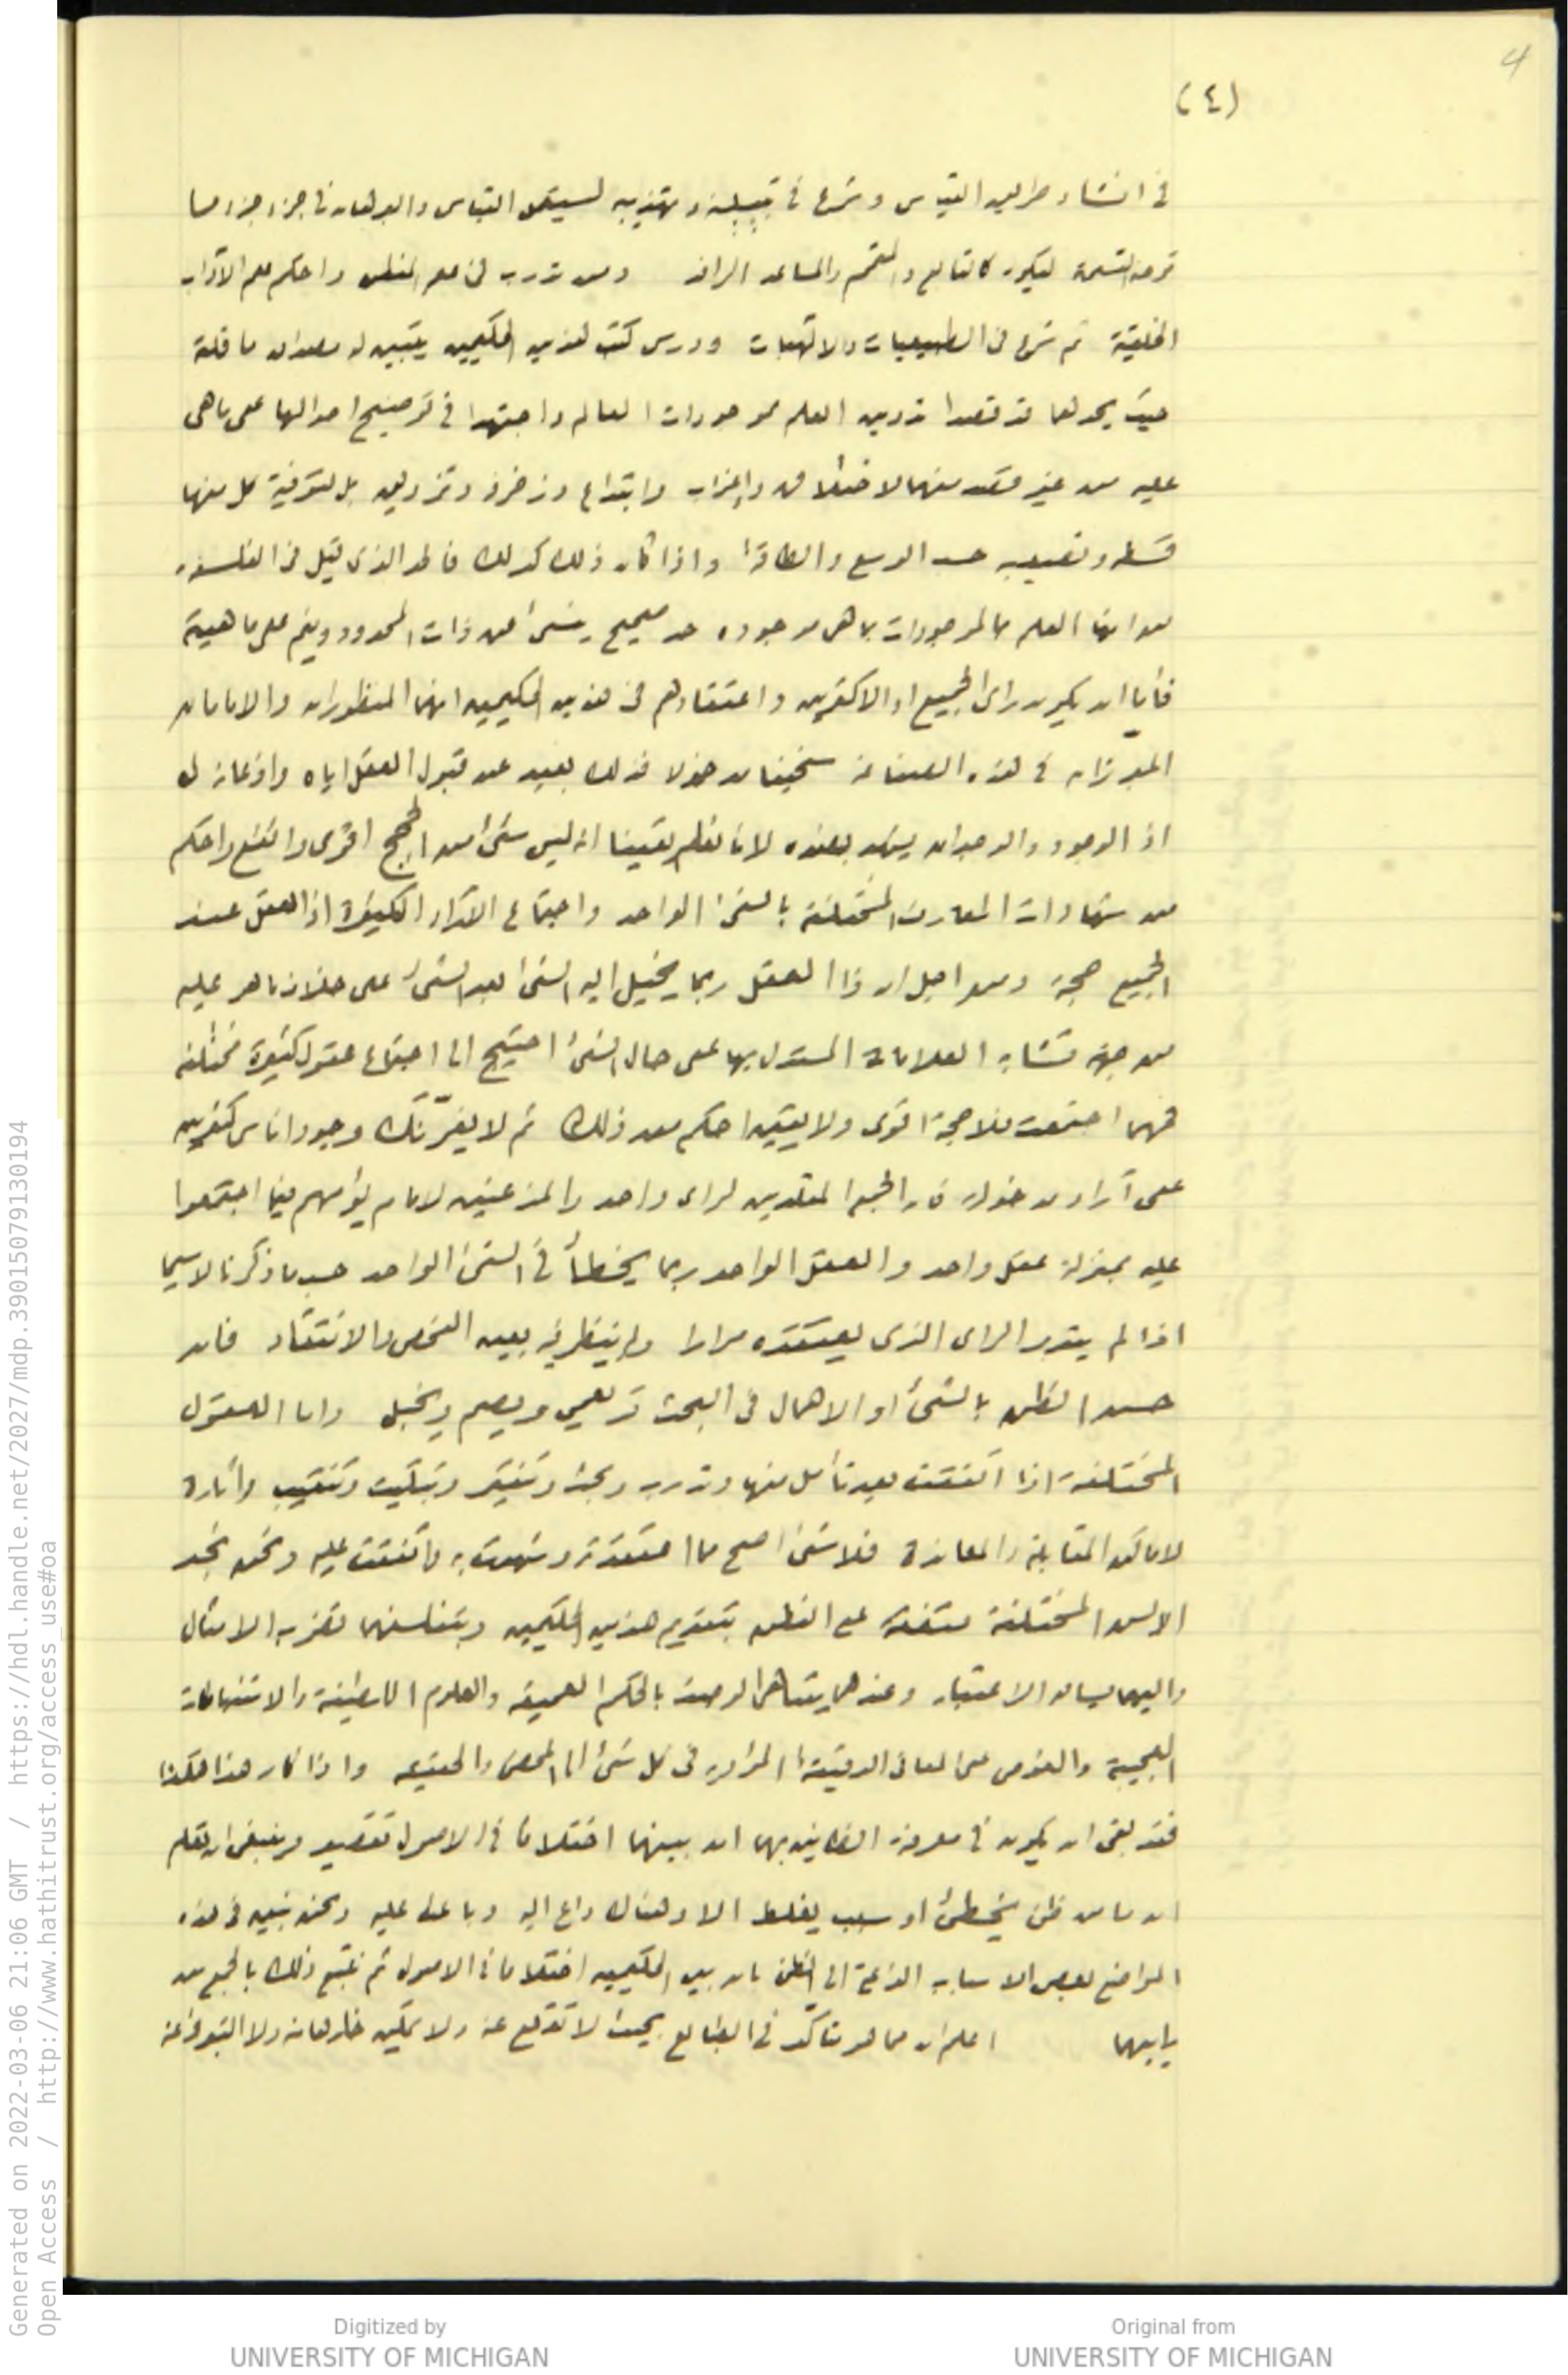 4
(٤)
في انشاء طريق القياس وشرع في تبيينه وتهذيبه ليستعمل القياس والبرهان في جزء جزء مما
توجبه القسمة ليكون كالتابع والمتمم والمساعد الراند ومن تدرب في علم المنطق واحكم علم الآداب
الخلقية ثم شرع في الطبيعيات والالهيات ودرس كتب هذين الحكيمين يتبين له مصداق ما قلته
حيث يجدهما قد قصدا تدوين العلم بموجودات العالم واجتهدا في توضيح احوالها على ما هي
عليه من غير قصد منهما لاختلاق واغراب وابتداع وزخرفة وتزويق بل لتوفية كل منها
قسطه ونصيبه حسب الوسع والطاقة واذا كان ذلك كذلك فالحد الذي قيل في الفلسفة
من انها العلم بالموجودات بما هي موجوده حد صحيح ينبئ عن ذات المحدود ويدل على ماهيته
فأما ان يكون راى الجميع او الاكثرين واعتقادهم في هذين الحكيمين انهما المنظوران والامامان
المبرزان في هذه الصناعة سخيفا مدخولا فذلك بعيد عن قبول العقل اياه واذعانه له
اذ الوجود والوجدان يشهد بضده لانا نعلم يقينا انه ليس شئ من الحجج اقوى وانفع واحكم
من شهادات المعارف المختلفة بالشئ الواحد واجتماع الآراء الكثيرة اذ العقل عند
الجميع حجة ومن اجل ان ذا العقل ربما يخيل اليه الشئ بعد الشئ على خلاف ما هو عليه
من جهة تشابه العلامات المستدل بها على حال الشئ احتيج الى اجتماع عقول كثيرة مختلفة
فمهما اجتمعت فلا حجة اقوى ولا يقين احكم من ذلك ثم لا يغرّنّك وجود اناس كثيرين
على آراء مدخولة فان الجماعة المقلدين لراى واحد والمذعنين لامام يؤمهم فيما اجتمعوا
عليه بمنزلة عقل واحد والعقل الواحد ربما يخطأ في الشئ الواحد حسب ما ذكرنا لا سيما
اذا لم يتدبر الراى الذي يعتقده مرارا ولم ينظر فيه بعين الفحص والانتقاد فان
حسن الظن بالشئ او الاهمال في البحث قد يعمي ويصم ويخبل واما العقول
المختلفة اذا اتفقت بعد تأمل منها وتدرب وبحث وتنقير وتبكيت وتنقيب واثارة
لاماكن المقابلة والمعاندة فلا شئ اصح مما اعتقدته وشهدت به واتفقت عليه ونحن نجد
الالسن المختلفة متفقة على النطق بتقديم هذين الحكيمين وبتفلسفهما تضرب الامثال
واليهما يساق الاعتبار وعندهما يتناهى الوصف بالحكم العميقة والعلوم اللطيفة والاستنباطات
العجيبة والغوص على المعاني الدقيقة المؤدية في كل شئ الى المحض والحقيقة واذا كان هذا هكذا
فقد بقى ان يكون في معرفة الظانين بهما ان بينهما اختلافا في الاصول تقصير وينبغي ان تعلم
ان ما من ظن يخطئ او سبب يغلط الا وهناك داع اليه وباعث عليه ونحن نبين في هذه
المواضع بعض الاسباب الداعية الى الظن بان بين الحكيمين اختلافا في الاصول ثم نتبع ذلك بالجمع بين
رأييهما اعلم ان مما هو متأكد في الطبائع بحيث لا تقلع عنه ولا يمكن خلوها منه ولا التبرؤ عنه
Generated on 2022-03-06 21:06 GMT / https://hdl.handle.net/2027/mdp.39015079130194
Open Access / http://www.hathitrust.org/access_use#oa
Digitized by
UNIVERSITY OF MICHIGAN
Original from
UNIVERSITY OF MICHIGAN